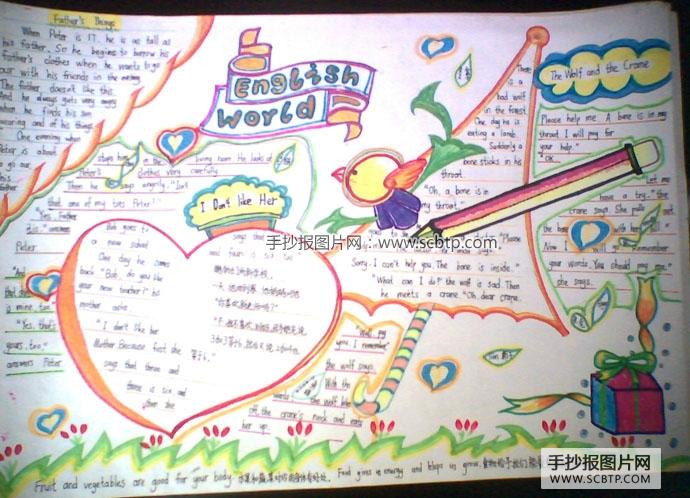 Father's Things
When Peter is 17. he is as tall as
his father. So he begins to borrow his
Father's clothes when he wants to go
our with his friends in the
The father, doesn't like this.
he always gets very angry
when finds his son
wearing and of his things.
One evening when
Peter is about
to go our
his
father
stops him in the living room. He looks at
Peter's clothes very carefully.
Then he says angrily. "Isn't
that one of my ties Peter?"
"Yes Father
it is" answers
Peter
"And
is mine, too"
"Yes. that's
yours, too."
answers Peter.
English
World
I Don't like Her
Bob goes to
a new school
One day he came
back "Bob, do you like
your new teacher?" his
mother asks
"I don't like her
Mother Because first she
says that three and
three is six, and
then she
says that
and four is six too
There
is a
bad wolf
in the forest
One day he is
eating a lamb.
Suddenly a
bone sticks in his
throat.
"Oh, a bone is in
my throat."
goes to
"Please
Sorry. I can't help you. The bone is inside.
"What can I do? the wolf is sad. Then
he meets a crane. "Oh, dear crane.
The Wolf and the Crane
Please help me. A bone is in my
throat. I will pay for
your help."
"OK
Let me
have a try." the
crane says. She puts
bone with her
Now
your words. You should
me."
she says.
"Well, pay
you. I remember."
the wolf says.
With the
words the wolf
off the crane's neck and eats
her up.
手抄报图片网：www.scbtp.com
Fruit and vegetables are good for your body. Food gives us energy and
手抄报图片网
WWW.SCBTP.COM